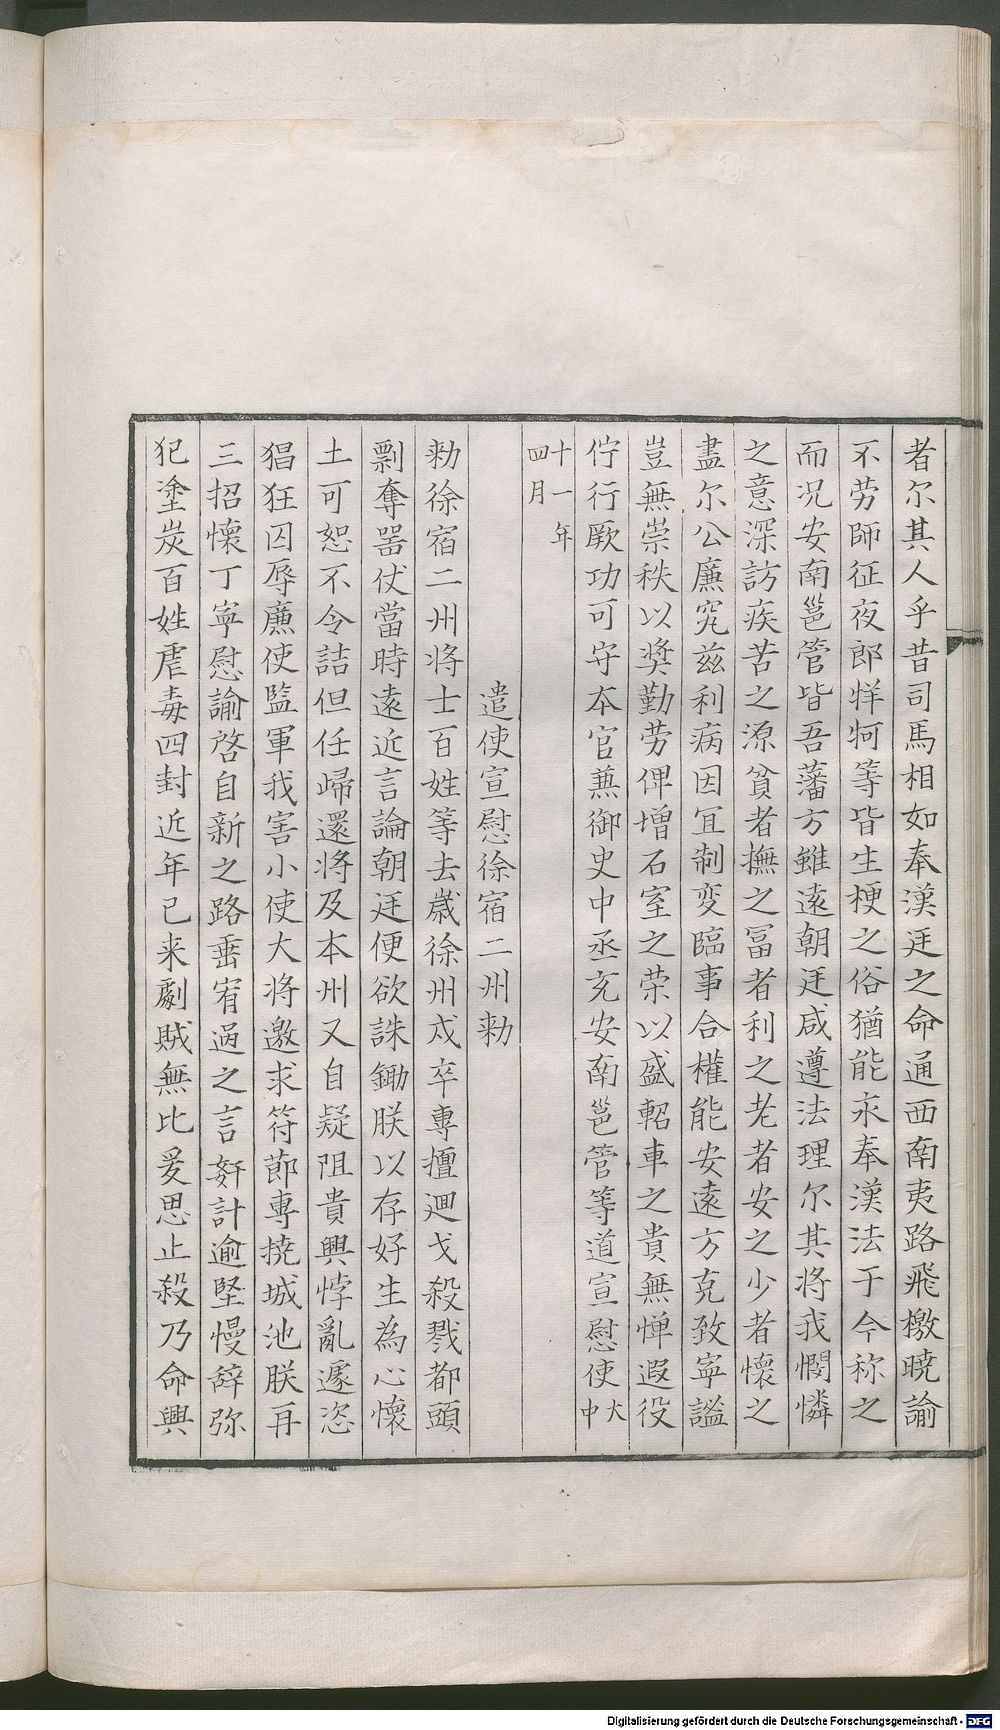 者尔其人乎昔司馬相如奉漢廷之命通西南夷路飛檄曉諭
不劳師征夜郎牂牁等皆生梗之俗猶能永奉漢法于今称之
而况安南邕管皆吾藩方雖逺朝廷咸遵法理尔其将我憫憐
之意深訪疾苦之源貧者撫之冨者利之老者安之少者懷之
盡尔公廉究兹利病因冝制变臨事合權能安逺方克致寧謐
豈無崇秩以奨勤劳俾增石室之荣以盛軺車之貴無惮遐役
佇行厥功可守本官兼御史中丞充安南邕管等道宣慰使大中
十一年四月
遣使宣慰徐宿二州勑
勑徐宿二州将士百姓等去歳徐州戍卒專擅廻戈殺戮都頭
剽奪噐仗當時逺近言論朝廷便欲誅鋤朕以存好生為心懷
土可恕不令詰但任歸還将及本州又自疑阻貴興悖亂遽恣
猖狂囚辱廉使監軍我害小使大将邀求符節專撓城池朕再
三招懷丁寧慰諭啓自新之路垂宥過之言姧計逾堅慢辞弥
犯塗炭百姓虐毒四封近年已来劇賊無比爰思止殺乃命興
Digitalisierung gefördert durch die Deutsche Forschungsgemeinschaft - DFG